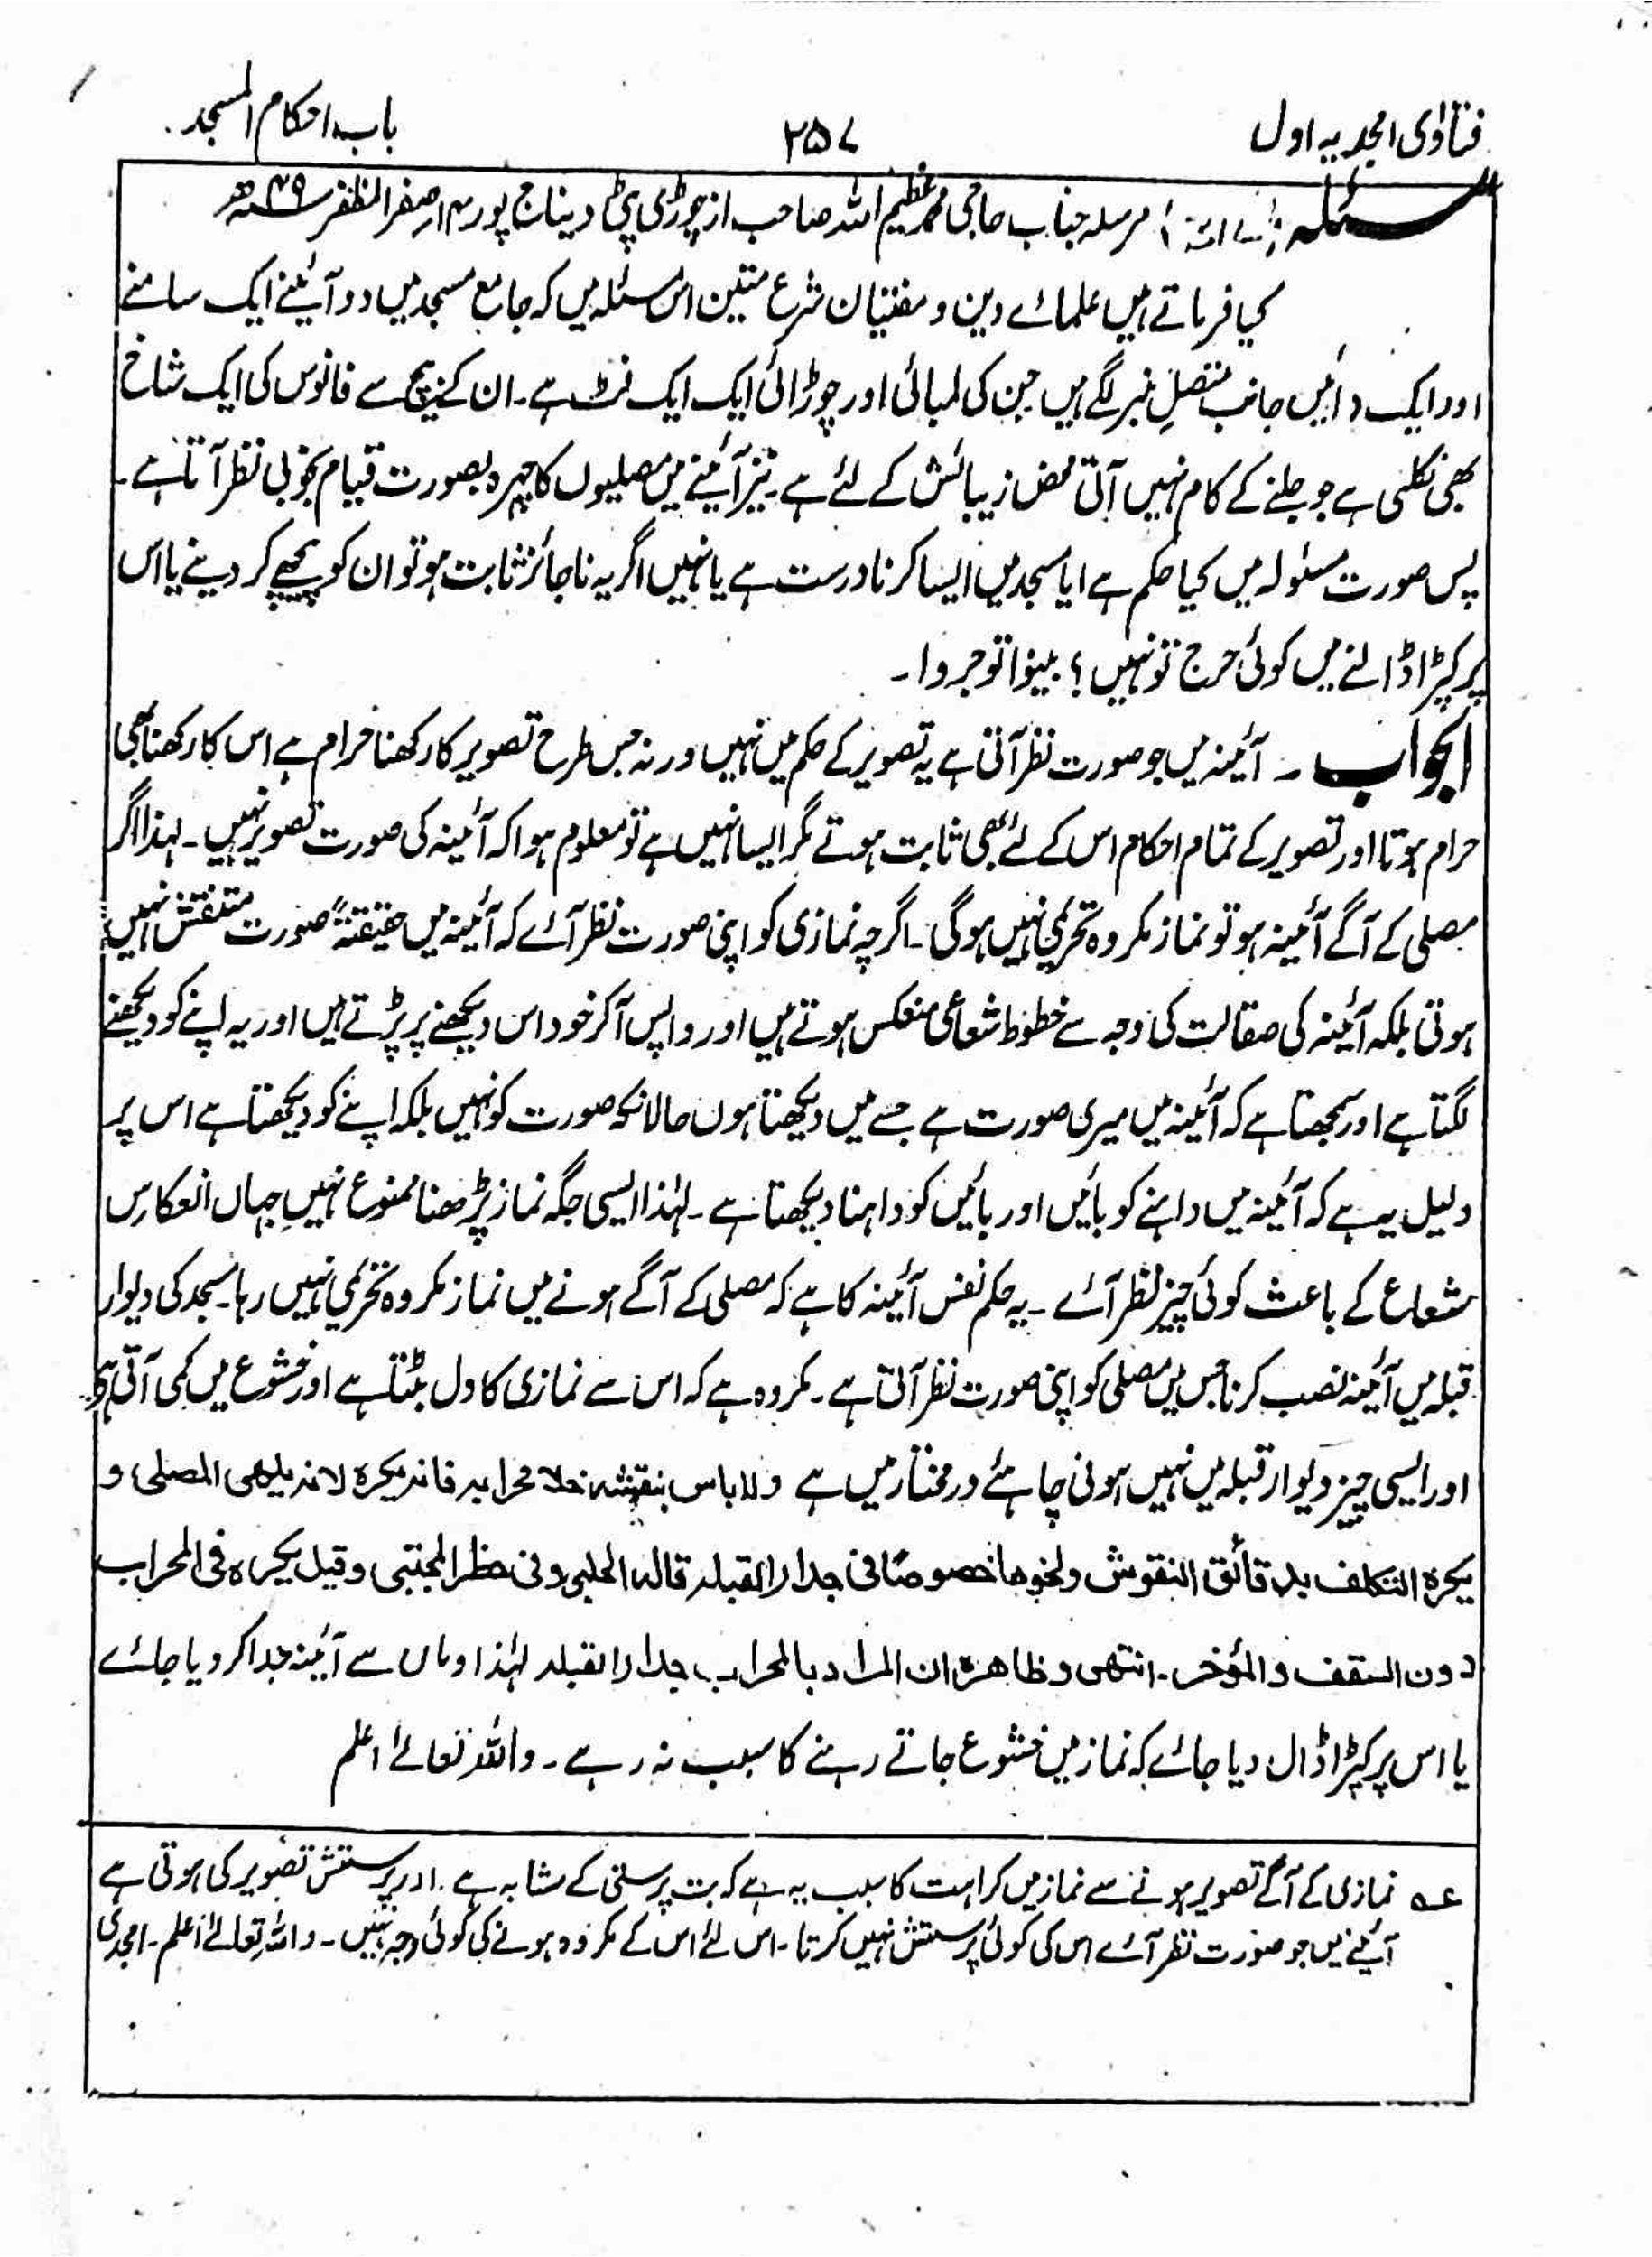 فتاوٰی امجدیہ اول
۲۵۷
باب احکام المسجد
مسئلہ مرسلہ جناب حاجی محمد عظیم اللہ صاحب از چوڑی پٹی دیناج پور ۱۴ صفر المظفر ۴۹ھ
کیا فرماتے ہیں علمائے دین و مفتیان شرع متین اس مسئلہ میں کہ جامع مسجد میں دو آئینے ایک سامنے
اور ایک دائیں جانب متصلِ منبر لگے ہیں جن کی لمبائی اور چوڑائی ایک ایک فٹ ہے۔ ان کے بیچ سے فانوس کی ایک شاخ
بھی نکلی ہے جو جلنے کے کام نہیں آتی محض زیبائش کے لئے ہے۔ نیز آئینے میں مصلیوں کا چہرہ بصورت قیام بخوبی نظر آتا ہے۔
پس صورت مسئولہ میں کیا حکم ہے ایا مسجد میں ایسا کرنا درست ہے یا نہیں اگر یہ ناجائز ثابت ہو تو ان کو پیچھے کر دینے یا اس
پر کپڑا ڈالنے میں کوئی حرج تو نہیں؟ بینوا توجروا۔
الجواب۔ آئینہ میں جو صورت نظر آتی ہے یہ تصویر کے حکم میں نہیں ورنہ جس طرح تصویر کا رکھنا حرام ہے اس کا رکھنا بھی
حرام ہوتا اور تصویر کے تمام احکام اس کے لئے بھی ثابت ہوتے مگر ایسا نہیں ہے تو معلوم ہوا کہ آئینہ کی صورت تصویر نہیں۔ لہذا اگر
مصلی کے آگے آئینہ ہو تو نماز مکروہ تحریمی نہیں ہوگی۔ اگرچہ نمازی کو اپنی صورت نظر آئے کہ آئینہ میں حقیقۃً صورت منتقش نہیں
ہوتی بلکہ آئینہ کی صقالت کی وجہ سے خطوط شعاعی منعکس ہوتے ہیں اور واپس آکر خود اس دیکھنے پر پڑتے ہیں اور یہ اپنے کو دیکھنے
لگتا ہے اور سمجھتا ہے کہ آئینہ میں میری صورت ہے جسے میں دیکھتا ہوں حالانکہ صورت کو نہیں بلکہ اپنے کو دیکھتا ہے اس پر
دلیل یہ ہے کہ آئینہ میں داہنے کو بائیں اور بائیں کو داہنا دیکھتا ہے۔ لہٰذا ایسی جگہ نماز پڑھنا ممنوع نہیں جہاں انعکاس
شعاع کے باعث کوئی چیز نظر آئے۔ یہ حکم نفس آئینہ کا ہے کہ مصلی کے آگے ہونے میں نماز مکروہ تحریمی نہیں رہا۔ مسجد کی دیوار
قبلہ میں آئینہ نصب کرنا جس میں مصلی کو اپنی صورت نظر آتی ہے۔ مکروہ ہے کہ اس سے نمازی کا دل بٹتا ہے اور خشوع میں کمی آتی ہے
اور ایسی چیز دیوار قبلہ میں نہیں ہونی چاہئے درمختار میں ہے ولاباس بنقشہ خلا محرابہ فانہ یکرہ لانہ یلھی المصلی و
یکرہ التکلف بدقائق النقوش ونحوھا خصوصًا فی جدار القبلہ قالہ الحلبی وفی حظر المجتبی وقیل یکرہ فی المحراب
دون السقف والمؤخر۔ انتھی وظاھرہ ان المراد بالمحراب جدار القبلہ لہٰذا وہاں سے آئینہ جدا کر دیا جائے
یا اس پر کپڑا ڈال دیا جائے کہ نماز میں خشوع جاتے رہنے کا سبب نہ رہے۔ واللہ تعالےٰ اعلم
عہ نمازی کے آگے تصویر ہونے سے نماز میں کراہت کا سبب یہ ہے کہ بت پرستی کے مشابہ ہے۔ اور پرستش تصویر کی ہوتی ہے
آئینے میں جو صورت نظر آئے اس کی کوئی پرستش نہیں کرتا۔ اس لئے اس کے مکروہ ہونے کی کوئی وجہ نہیں۔ واللہ تعالےٰ اعلم۔ امجدی